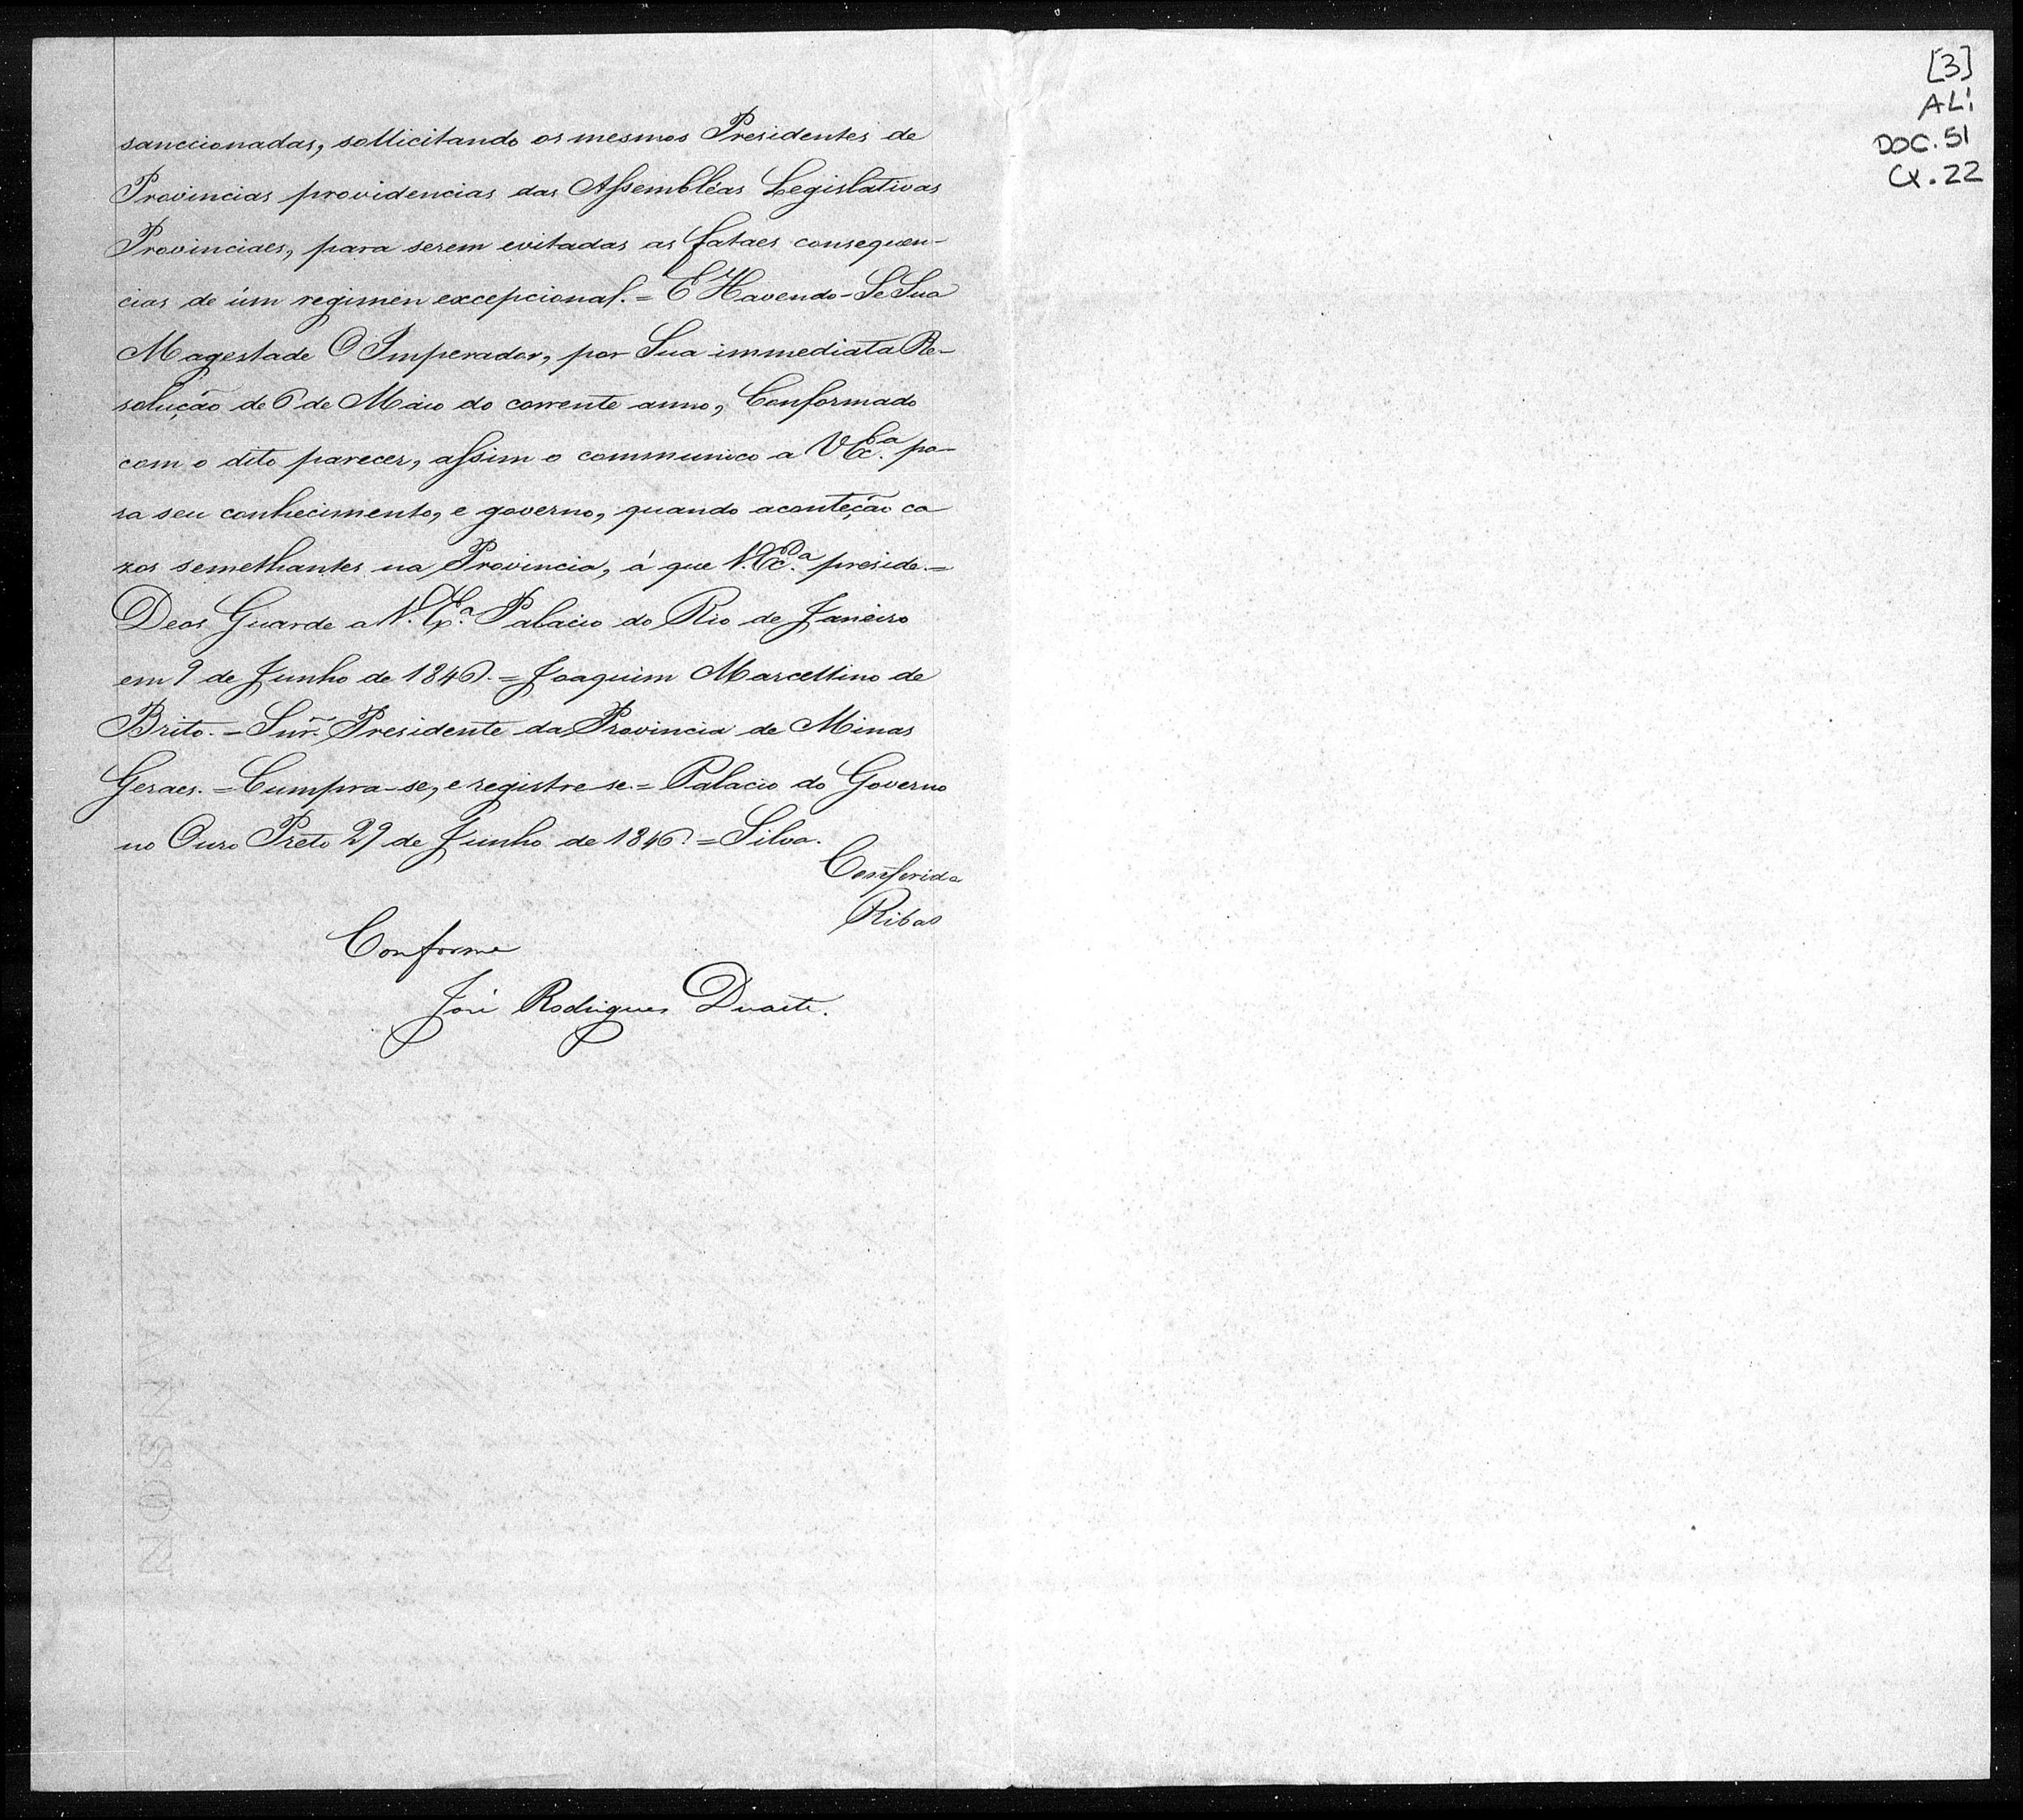 sanccionadas, sollicitando os mesmos Presidentes de
Provincias providencias das Assembléas Legislativas
Provinciaes, para serem evitadas as fataes consequen-
cias de úm regimen excepcional. = E Havendo-Se Sua
Magestade O Imperador, por Sua immediata Re-
solução de 6 de Maio do corrente anno, Conformado
com o dito parecer, assim o communico a V Ex.ª pa-
ra seu conhecimento, e governo, quando aconteção ca
zos semelhantes na Provincia, á que V. Ex.ª preside. =
Deos Guarde a V. Ex.ª Palacio do Rio de Janeiro
em 9 de Junho de 1846. = Joaquim Marcellino de
Brito. = Snr. Presidente da Provincia de Minas
Geraes. = Cumpra-se, e registre-se = Palacio do Governo
no Ouro Preto 29 de Junho de 1846 = Silva.
Conferida
Ribas
Conforme
José Rodrigues Duarte.
[3]
AL1
DOC. 51
CX. 22